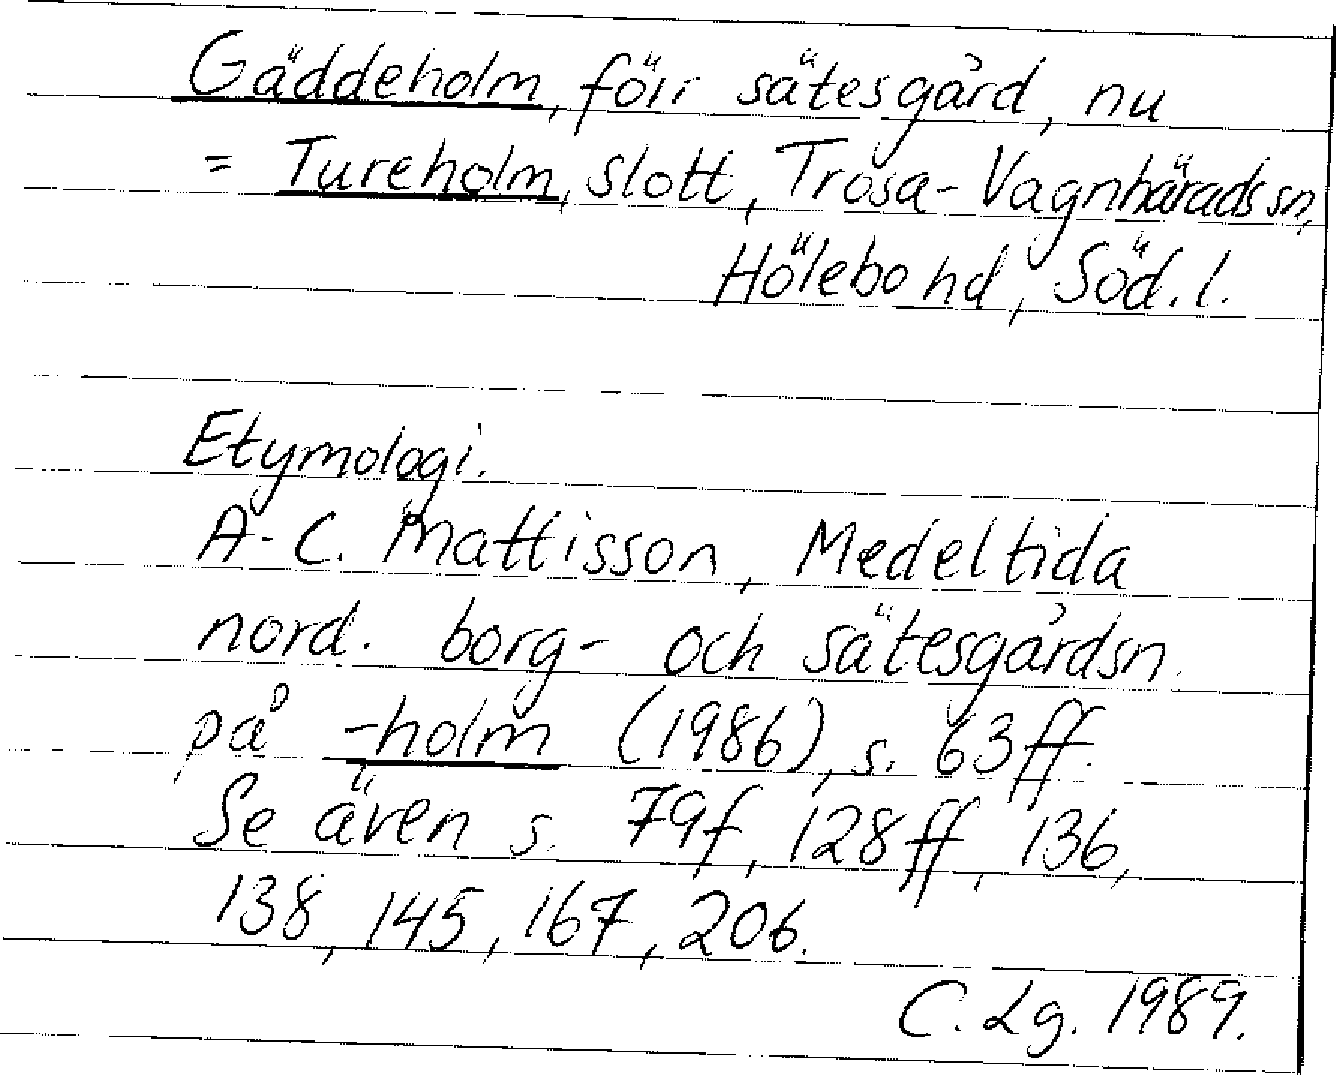 Gäddeholm, förr sätesgård, nu
= Tureholm, slott, Trosa-Vagnhärads sn,
Hölebo hd, Söd. l.
Etymologi.
A-C. Mattisson, Medeltida
nord. borg- och sätesgårdsn.
på -holm (1986), s. 63ff.
Se även s. 79f, 128ff, 136,
138, 145, 167, 206.
C. Lg. 1989.